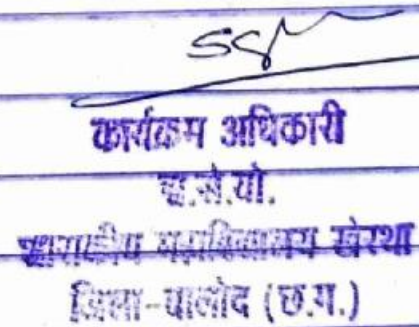 कार्यक्रम अधिकारी
रा.से.यो.
शासकीय महाविद्यालय खेरथा
जिला-बालोद (छ.ग.)